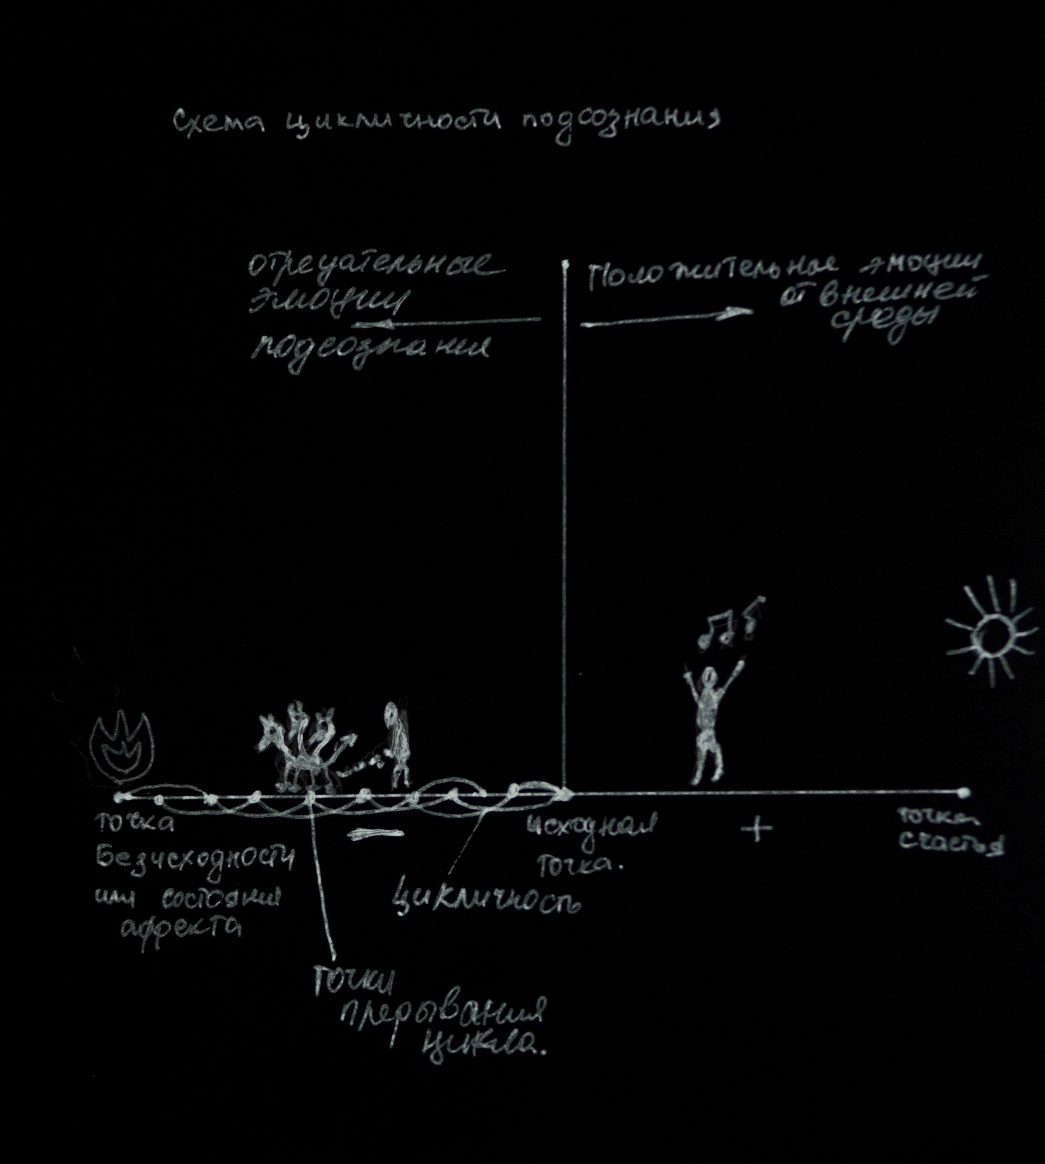 Схема цикличности подсознания
отрецательные
эмоции
подсознания
Положительные эмоции
от внешней
среды
точка
Безисходности
или состояния
аффекта
—
исходная
точка.
+
точка
счастья
Цикличность
точки
прерывания
цикла.